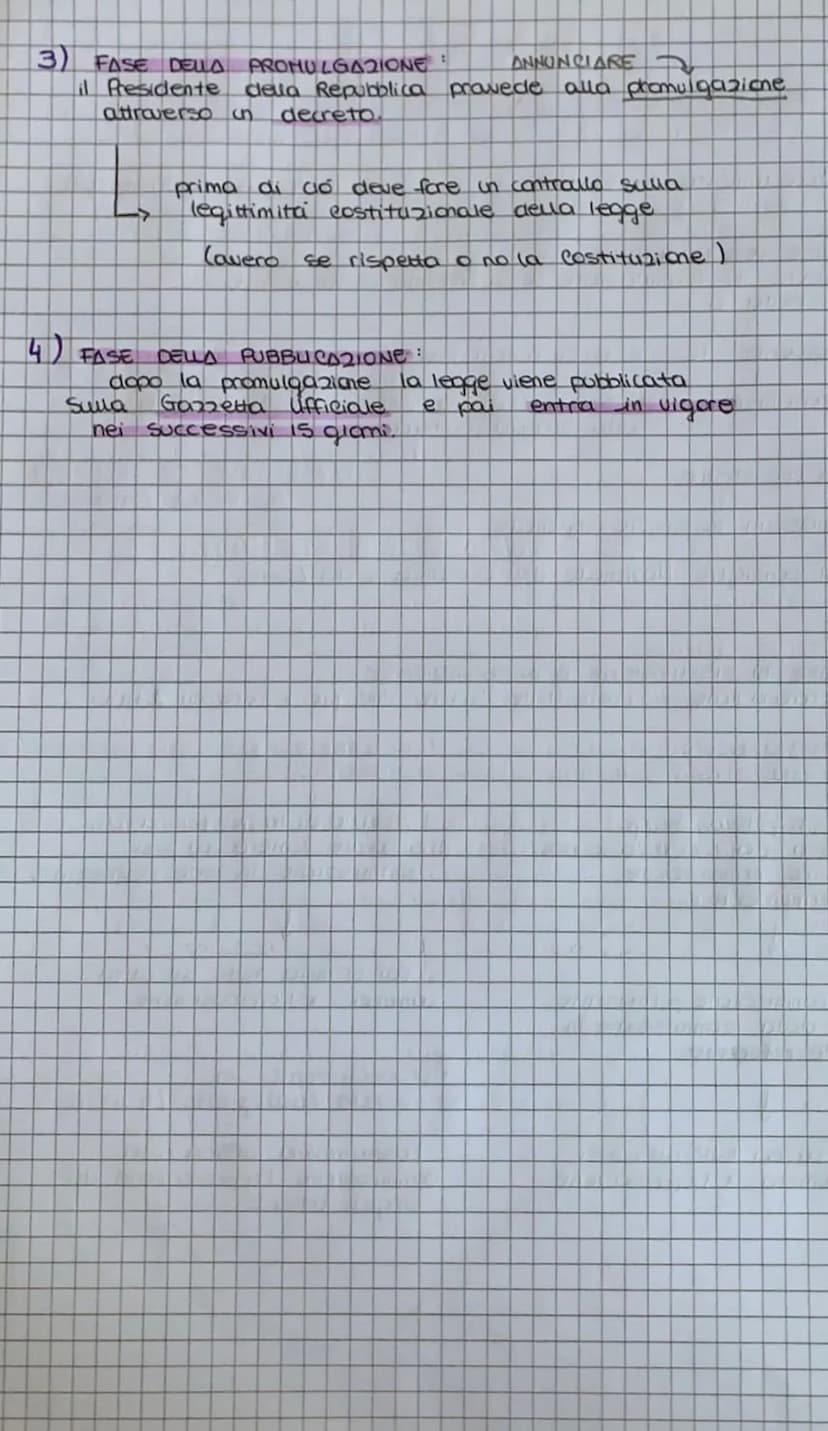 3) FASE DELLA PROMULGAZIONE: ANNUNCIARE
il Presidente della Repubblica provvede alla promulgazione
attraverso un decreto.
prima di ciò deve fare un controllo sulla
legittimità costituzionale della legge
(ovvero se rispetta o no la costituzione)
4) FASE DELLA PUBBLICAZIONE:
dopo la promulgazione la legge viene pubblicata
sulla Gazzetta Ufficiale e poi entra in vigore
nei successivi 15 giorni.